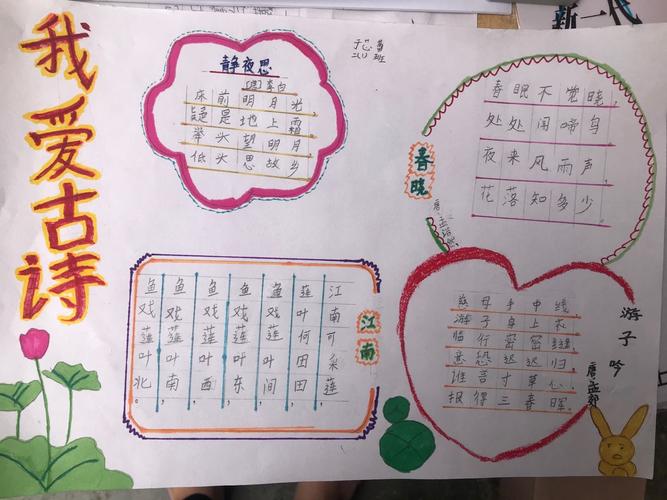 我爱古诗
静夜思
【唐】李白
床前明月光，
疑是地上霜
举头望明月
低头思故乡
班
新一代
春晓
唐 孟浩然
春眠不觉晓，
处处闻啼鸟
夜来风雨声
花落知多少
江南
江南可采莲
莲叶何田田
鱼戏莲叶间，
鱼戏莲叶东，
鱼戏莲叶西，
鱼戏莲叶南，
鱼戏莲叶北。
游子吟
唐 孟郊
慈母手中线
游子身上衣
临行密密缝
意恐迟迟归，
谁吾寸草心，
报得三春晖。